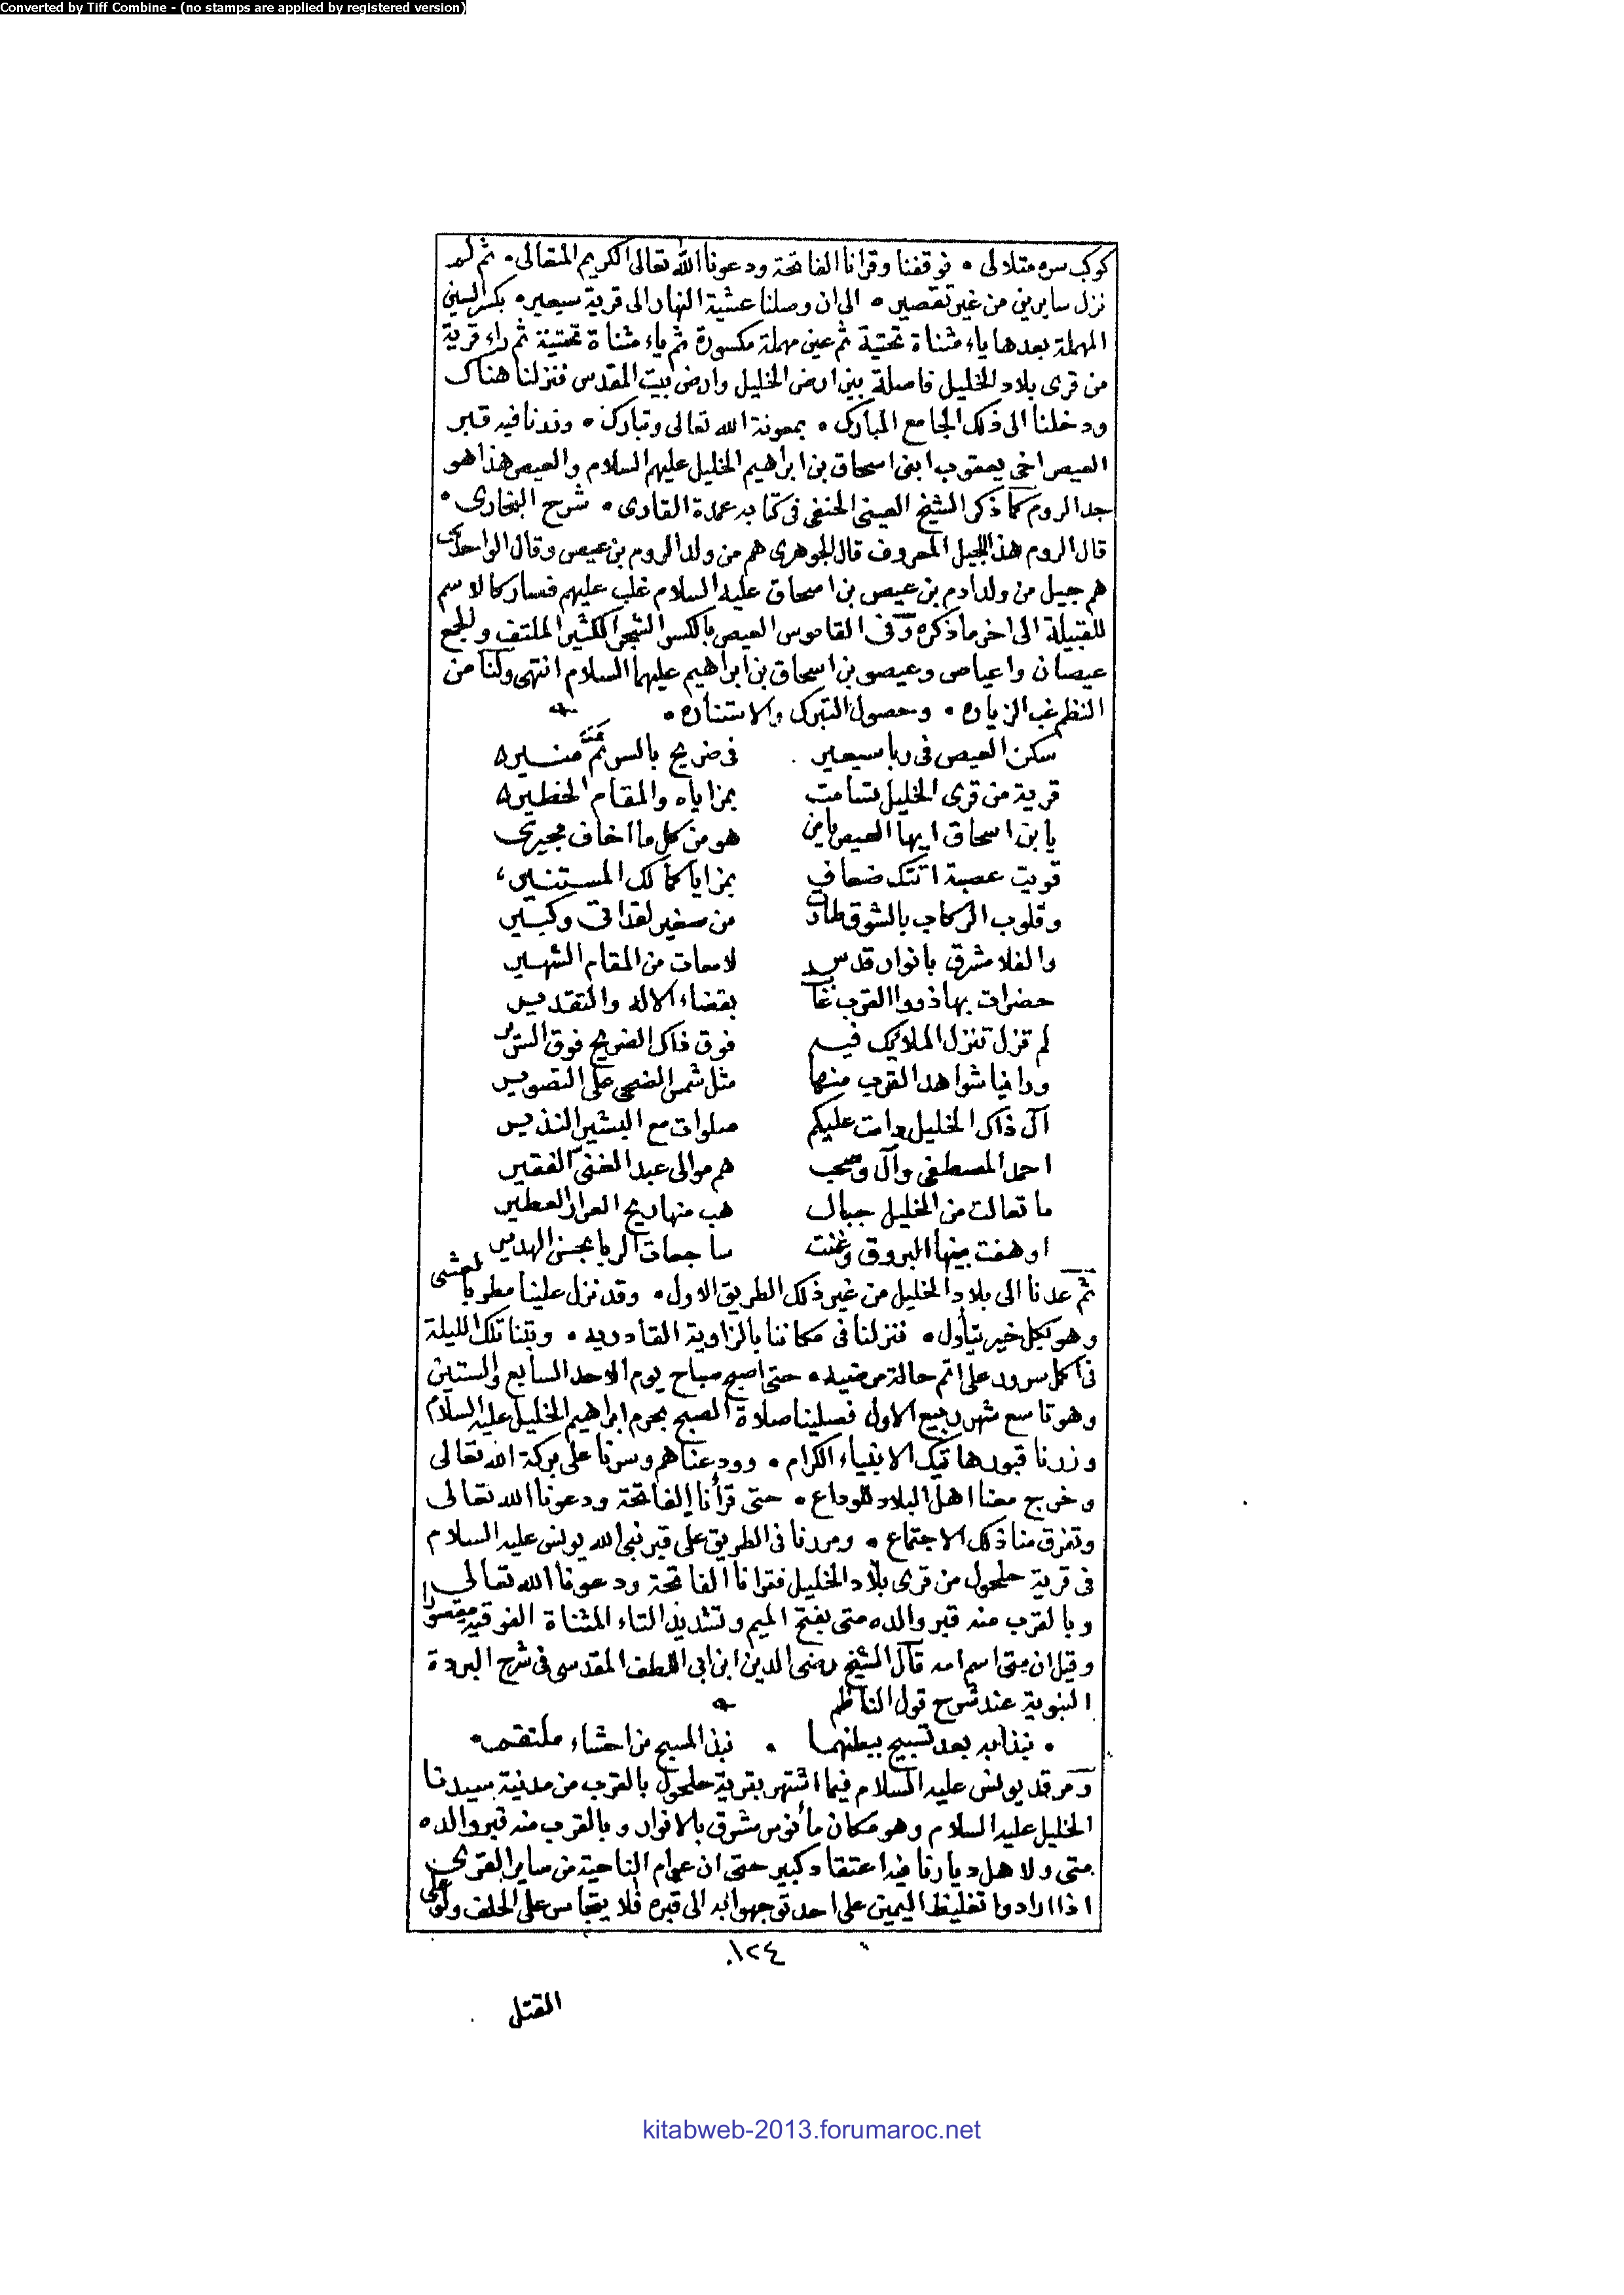 Converted by Tiff Combine - (no stamps are applied by registered version)
كوكب سره متلالى • فوقفنا وقرانا الفاتحة ودعونا الله تعالى الكريم المتعالى • ثم لم
نزل سايرين من غير تقصير • الى ان وصلنا عشية النهار الى قرية سيعير • بكسر السين
المهملة بعدها ياء مثناة تحتية ثم عين مهملة مكسورة ثم ياء مثناة تحتية ثم راء قرية
من قرى بلاد الخليل فاصلة بين ارض الخليل وارض بيت المقدس فنزلنا هناك
ودخلنا الى ذلك الجامع المبارك • بمعونة الله تعالى وتبارك • وزرنا فيه قبر
العيص اخى يعقوب ابنى اسحاق بن ابراهيم الخليل عليهم السلام والعيص هذا هو
جد الروم كما ذكر الشيخ العينى الحنفى فى كتابه عمدة القارى • شرح البخارى •
قال الروم هذا الجيل المعروف قال الجوهرى هم من ولد الروم بن عيص وقال الواحدى
هم جيل من ولد ارم بن عيص بن اسحاق عليه السلام غلب عليهم فصار كالاسم
للقبيلة الى اخر ما ذكره وفى القاموس العيص بالكسر الشجر الكثير الملتف والجمع
عيصان واعياص وعيصو بن اسحاق بن ابراهيم عليهما السلام انتهى ولنا من
النظم غب الزياره • وحصول التبرك والاستناره •
سكن العيص فى ربا سيعير فى ضريح بالسر ثم منير
قرية من قرى الخليل تسامت بمزاياه والمقام الخطير
يا بن اسحاق ايها العيص يا من هو من كل ما اخاف مجيرى
قويت عصبة اتتك ضعاف بمزايا كمالك المستنير
وقلوب الركاب بالشوق طارت من صغير لقد اتى وكبير
والفلا مشرق بانوار قدس لامعات من المقام الشهير
حضرات بها ذووا القرب غابت بقضاء الاله والتقدير
لم تزل تنزل الملائك فيه فوق ذاك الضريح فوق الستر
وراينا شواهد القرب منها مثل شمس الضحى على التصوير
آل ذاك الخليل دامت عليكم صلوات مع البشير النذير
احمد المصطفى وآل وصحب هم موالى عبد الغنى الفقير
ما تعالت من الخليل جبال هب منها ريح العرار العطير
او هفت بينها البروق وغنت ساجعات الربا بحسن الهدير
ثم عدنا الى بلاد الخليل من غير ذلك الطريق الاول • وقد نزل علينا مطر بالعشى
وهو بكل خير يتأول • فنزلنا فى مكاننا بالزاوية القادريه • وبتنا تلك الليلة
فى اكمل سرور على اتم حالة مرضيه • حتى اصبح صباح يوم الاحد السابع والستين
وهو تاسع شهر ربيع الاول فصلينا صلاة الصبح بحرم ابراهيم الخليل عليه السلام
وزرنا قبور هاتيك الانبياء الكرام • وودعناهم وسرنا على بركة الله تعالى
وخرج معنا اهل البلاد للوداع • حتى قرأنا الفاتحة ودعونا الله تعالى
وتفرق منا ذلك الاجتماع • ومررنا فى الطريق على قبر نبى الله يونس عليه السلام
فى قرية حلحول من قرى بلاد الخليل فقرانا الفاتحة ودعونا الله تعالى
وبالقرب منه قبر والده متى بفتح الميم وتشديد التاء المثناة الفوقية مقصورا
وقيل ان متى اسم امه قال الشيخ رضى الدين ابن ابى اللطف المقدسى فى شرح البردة
النبوية عند شرح قول الناظم
• نبذا به بعد تسبيح ببطنهما • نبذ المسبح من احشاء ملتقم •
ومرقد يونس عليه السلام فيما اشتهر بقرية حلحول بالقرب من مدينة سيدنا
الخليل عليه السلام وهو مكان مأنوس مشرق بالانوار وبالقرب منه قبر والده
متى ولاهل ديارنا فيه اعتقاد كبير حتى ان عوام الناحية من ساير القرى
اذا ارادوا تغليظ اليمين على احد توجهوا به الى قبره فلا يتجاسر على الحلف ولو على
١٢٤
القتل
kitabweb-2013.forumaroc.net